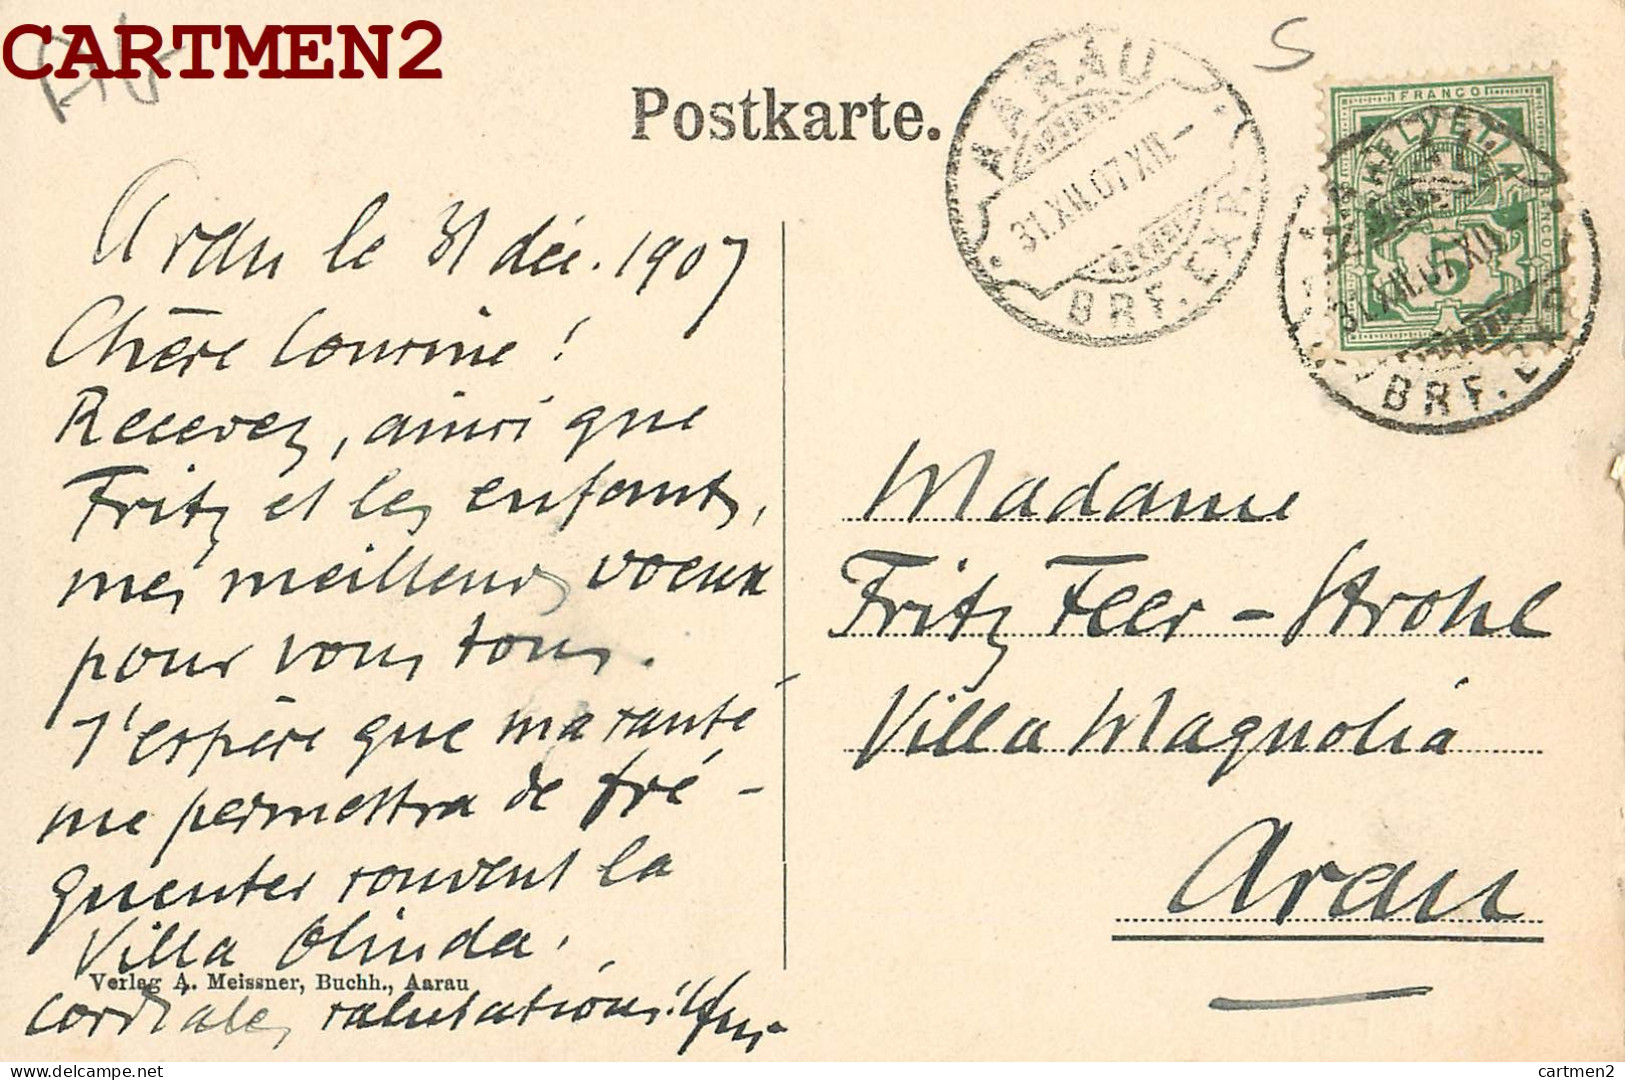 CARTMEN2
Postkarte.
AARAU
31.XII.07.XII-
BRF. EXP.
S
FRANCO
HELVETIA
5
31.XII.07.XII
BRF. EXP.
Arau le 31 déc. 1907
Chère Cousine !
Recevez, ainsi que
Fritz et les enfants,
mes meilleurs voeux
pour vous tous.
J'espère que ma santé
me permettra de fré-
quenter souvent la
Villa Olinda,
Verlag A. Meissner, Buchh., Aarau
cordiales salutations!
Madame
Fritz Feer-Strohl
Villa Magnolia
Arau
delcampe.net
cartmen2